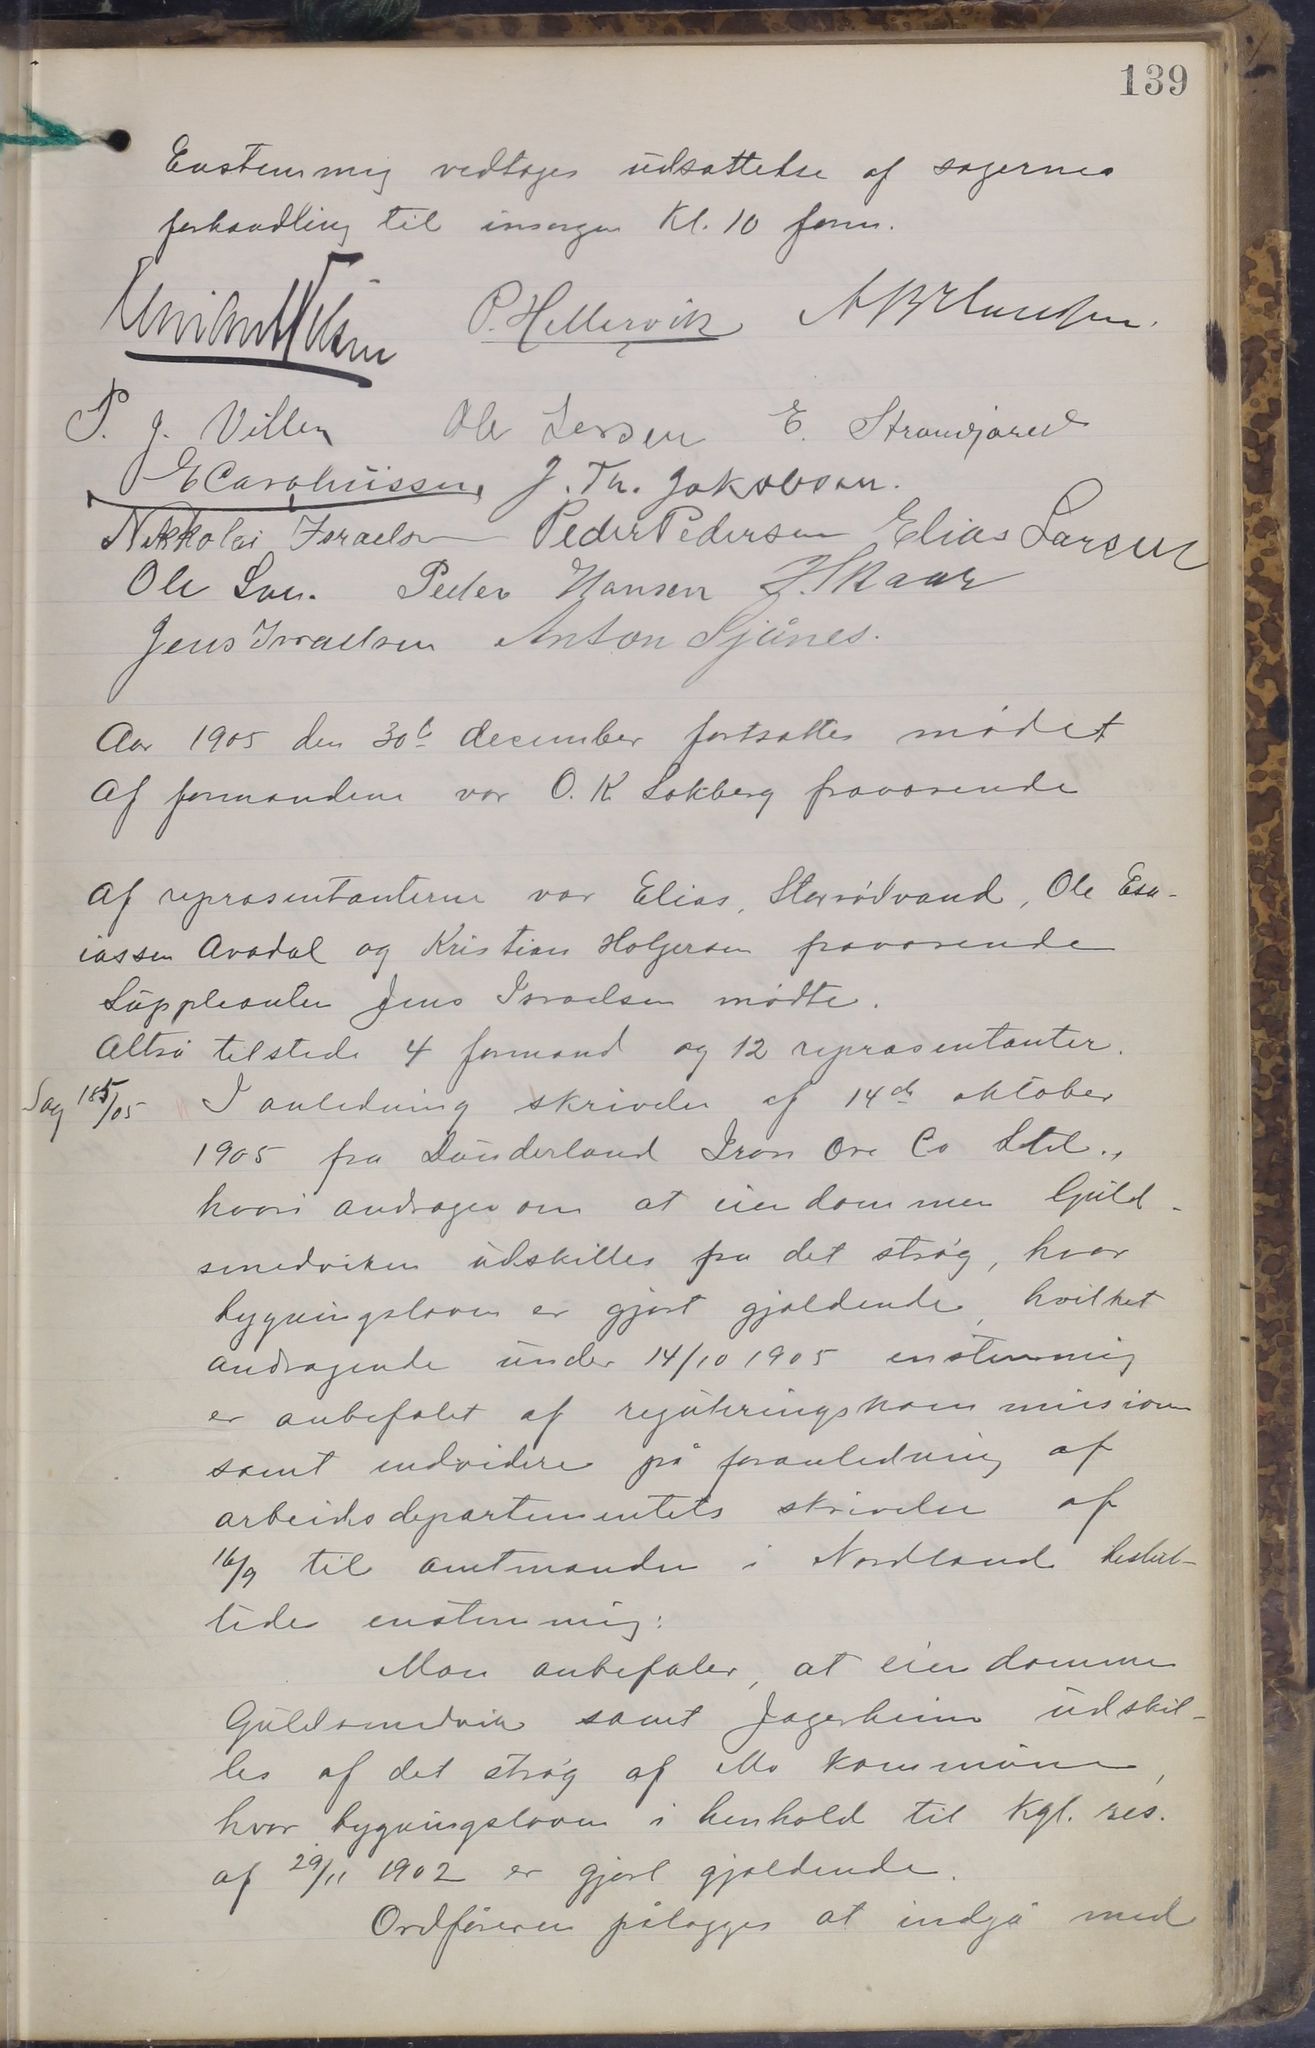 139
Enstemmig vedtages udsættelse af sagernes
forhandling til imorgen Kl. 10 form.
P. Hellervik
P. J. Villen Ole Jensen E. Strandjord
E Caroliussen, J. Th. Jakobsen.
Nikkolai Israelsen Peder Pedersen Elias Larsen
Ole Peder Hansen J. Skaar
Jens Israelsen Anton Sjånes.
Aar 1905 den 30te december fortsattes mødet
Af formændene var O. K. Løkberg fraværende
Af repræsentanterne var Elias Storrødvand, Ole Esa-
iassen Avadal og Kristian Holgersen fraværende
Suppleanten Jens Israelsen mødte.
Altså tilstede 4 formænd og 12 repræsentanter.
Sag 185/05 I anledning skrivelse af 14de oktober
1905 fra Dunderland Iron Ore Co Ltd.,
hvori andrages om at eiendommen Guld-
smedviken udskilles fra det strøg, hvor
bygningsloven er gjort gjældende, hvilket
andragende under 14/10 1905 enstemmig
er anbefalet af reguleringskommissionen
samt endvidere på foranledning af
arbeidsdepartementets skrivelse af
16/9 til amtmanden i Nordland beslut-
tedes enstemmig:
Man anbefaler, at eiendommene
Guldsmedvik samt Jægerheim udskil-
les af det strøg af Mo kommune,
hvor bygningsloven i henhold til Kgl. res.
af 29/11 1902 er gjort gjældende.
Ordføreren pålægges at indgå med